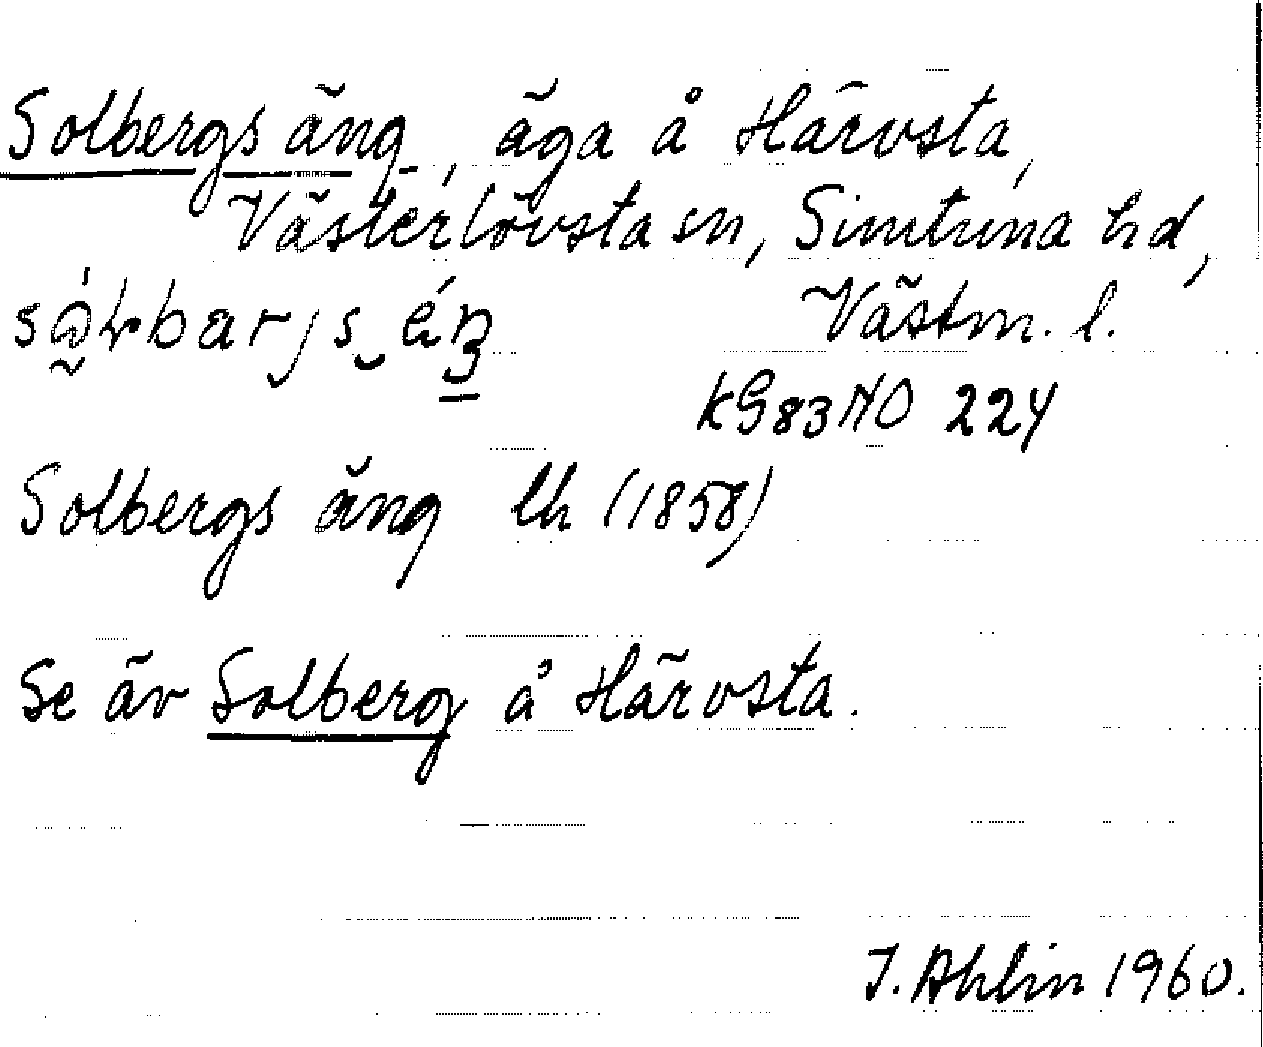 Solbergs äng, äga å Härvsta,
Västerlövsta sn, Simtuna hd,
Västm. l.
KG83NO 224
Solbergs äng lh (1858)
Se äv Solberg å Härvsta.
I. Ahlin 1960.